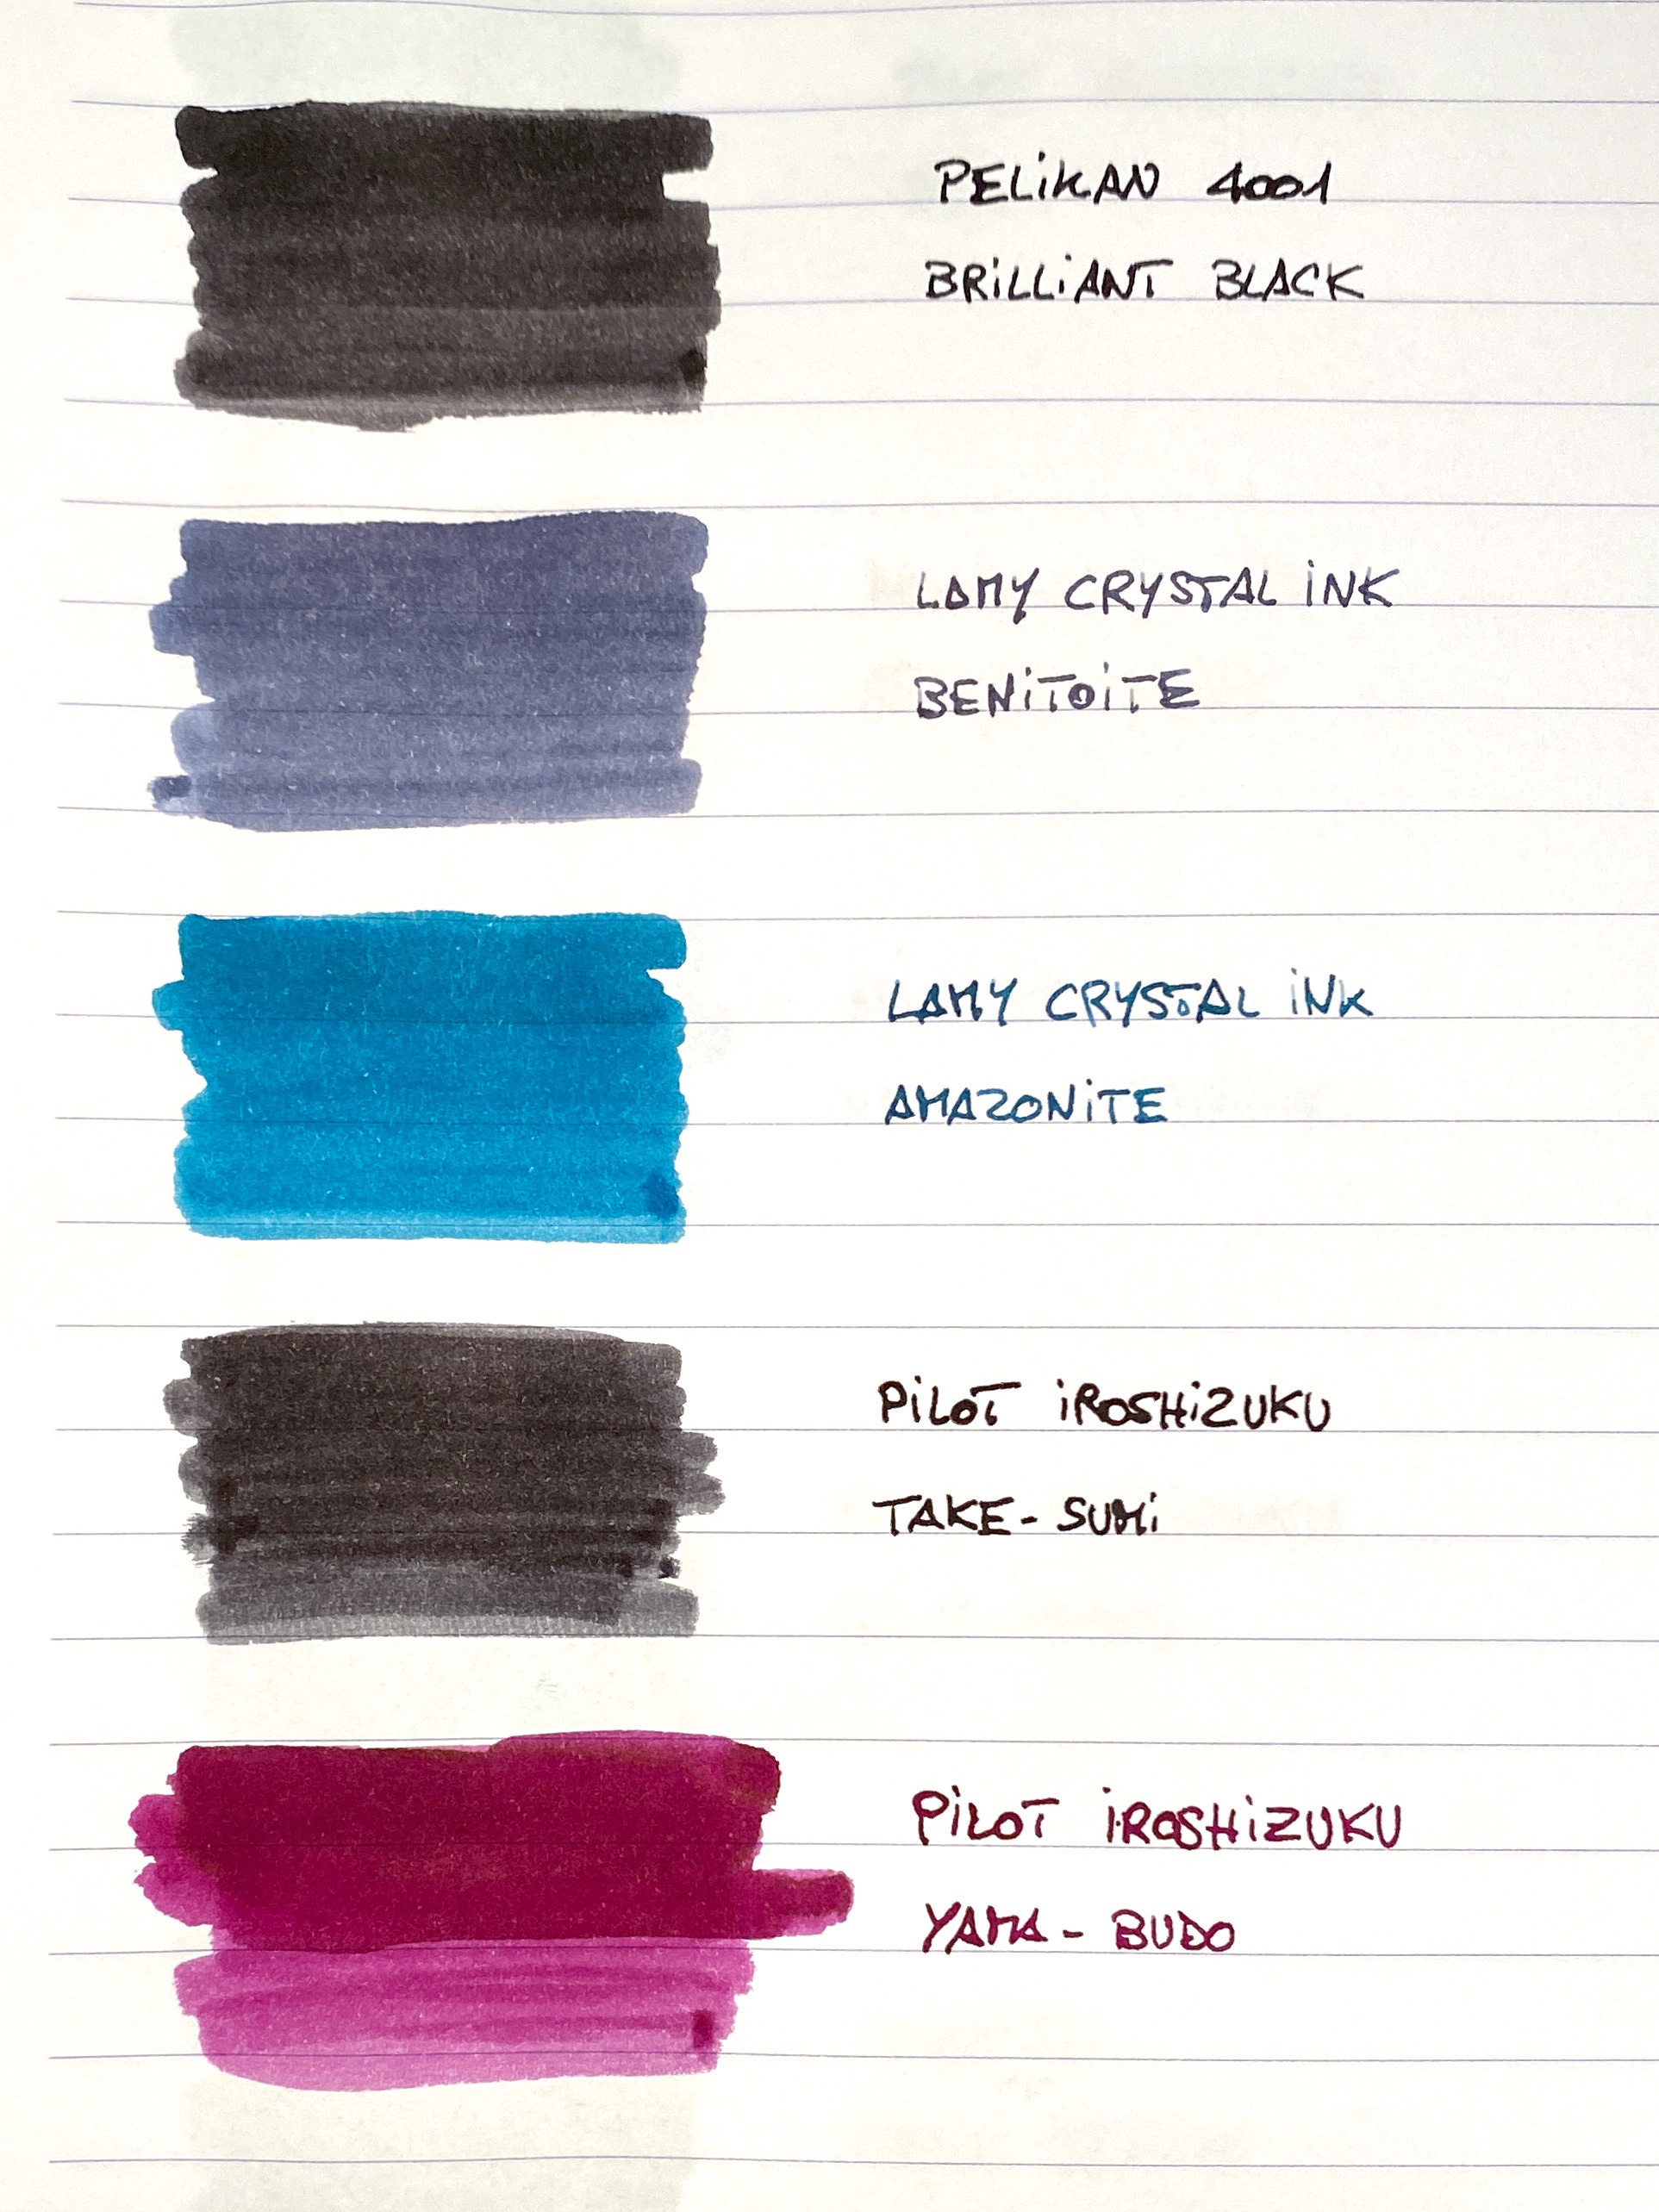 PELiKAN 4001
BRiLLiANT BLACK
LAMY CRYSTAL iNK
BENiTOiTE
LAMY CRYSTAL iNK
AMAZONiTE
PiLOT iROSHiZUKU
TAKE-SUMi
PiLOT iROSHiZUKU
YAMA-BUDO